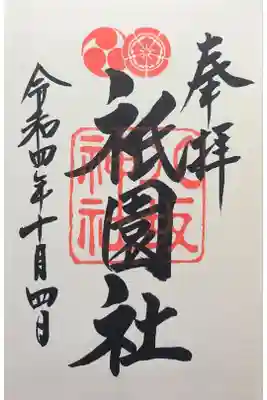 奉拝
祇園社
八坂神社
令和四年十月四日